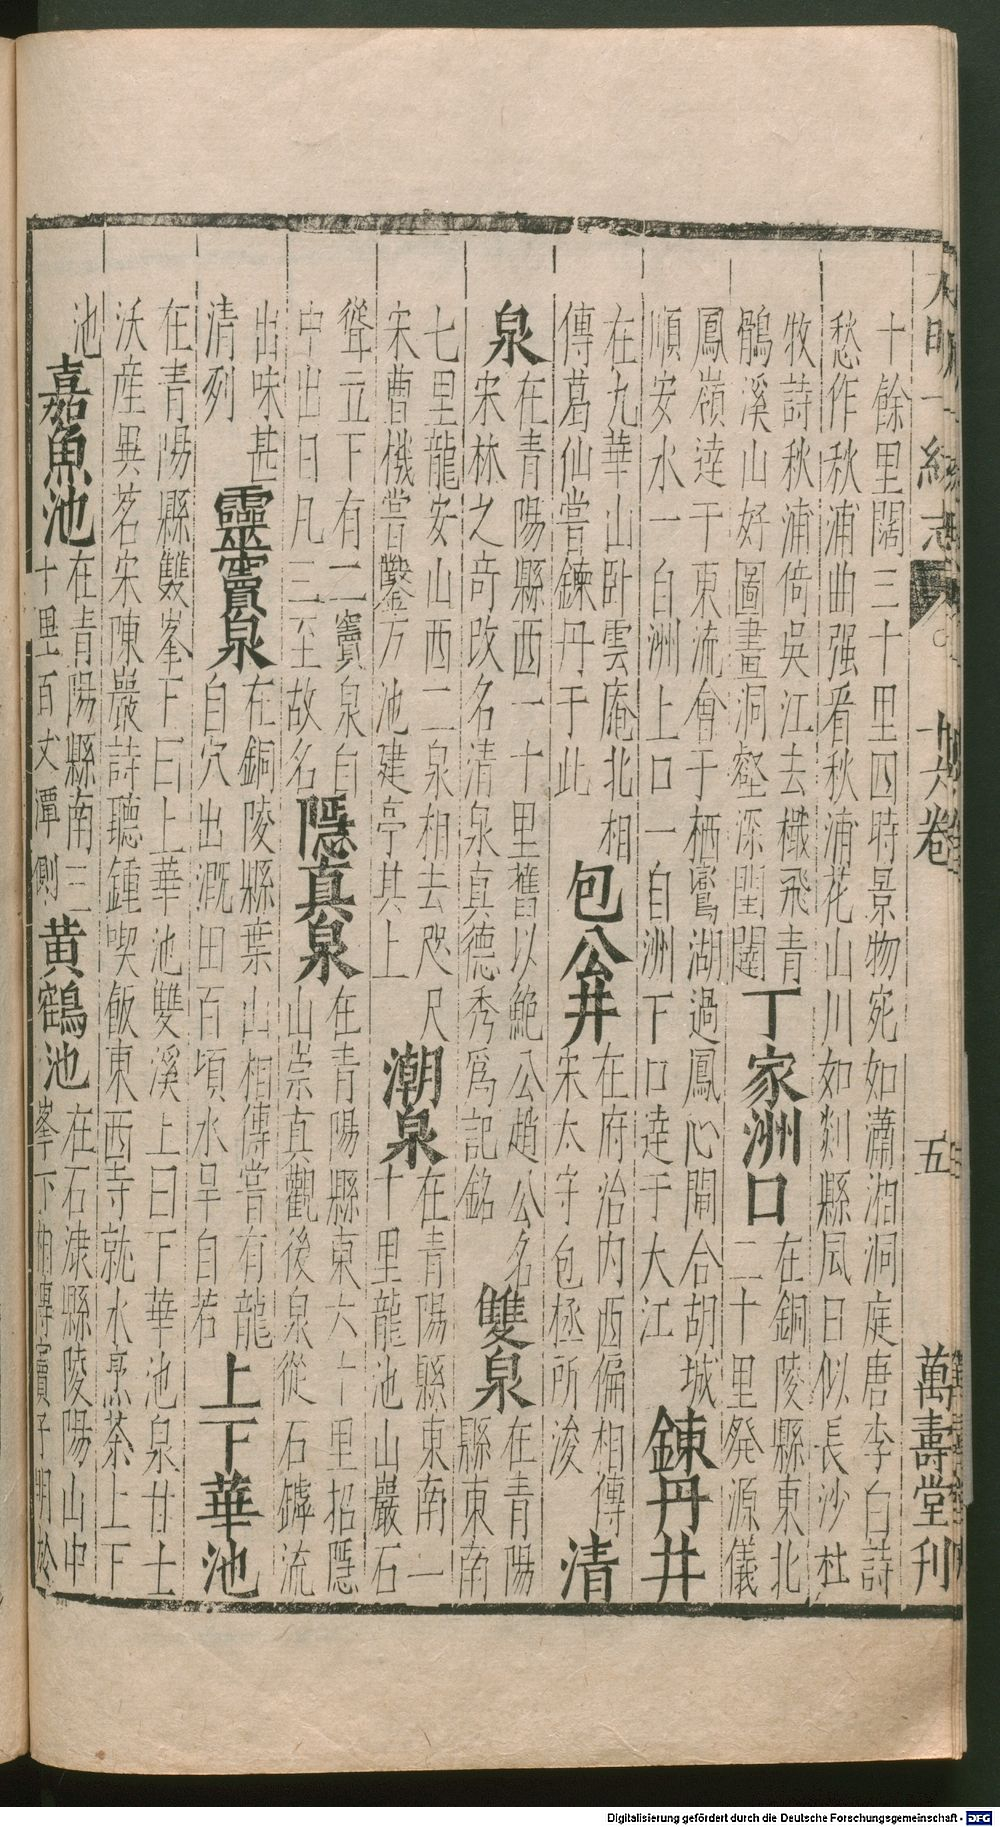 大明一統志 十六卷 五 萬壽堂刊
十餘里闊三十里四時景物宛如瀟湘洞庭唐李白詩
愁作秋浦曲强看秋浦花山川如剡縣風日似長沙杜
牧詩秋浦倚吳江去檝飛青
鶻溪山好圖畫洞壑深閨闥
丁家洲口
在銅陵縣東北
二十里發源儀
鳳嶺逹于東流會于栖鸞湖過鳳心閘合胡城
順安水一自洲上口一自洲下口逹于大江
鍊丹井
在九華山卧雲庵北相
傳葛仙嘗鍊丹于此
包公井
在府治内西偏相傳
宋太守包極所浚
清
泉
在青陽縣西一十里舊以鮑公趙公名
宋林之竒改名清泉真德秀爲記銘
雙泉
在青陽
縣東南
七里龍安山西二泉相去咫尺
宋曹機嘗鑿方池建亭其上
潮泉
在青陽縣東南一
十里龍池山巖石
聳立下有二竇泉自
中出日凡三至故名
隱真泉
在青陽縣東六十里招隱
山崇真觀後泉從石罅流
出味甚
清列
靈竇泉
在銅陵縣葉山相傳嘗有龍
自穴出溉田百頃水旱自若
上下華池
在青陽縣雙峯下曰上華池雙溪上曰下華池泉甘土
沃産異茗宋陳巖詩聽鍾喫飯東西寺就水烹茶上下
池
嘉魚池
在青陽縣南三
十里百丈潭側
黄鶴池
在石埭縣陵陽山中
峯下相傳竇子明於
Digitalisierung gefördert durch die Deutsche Forschungsgemeinschaft - DFG